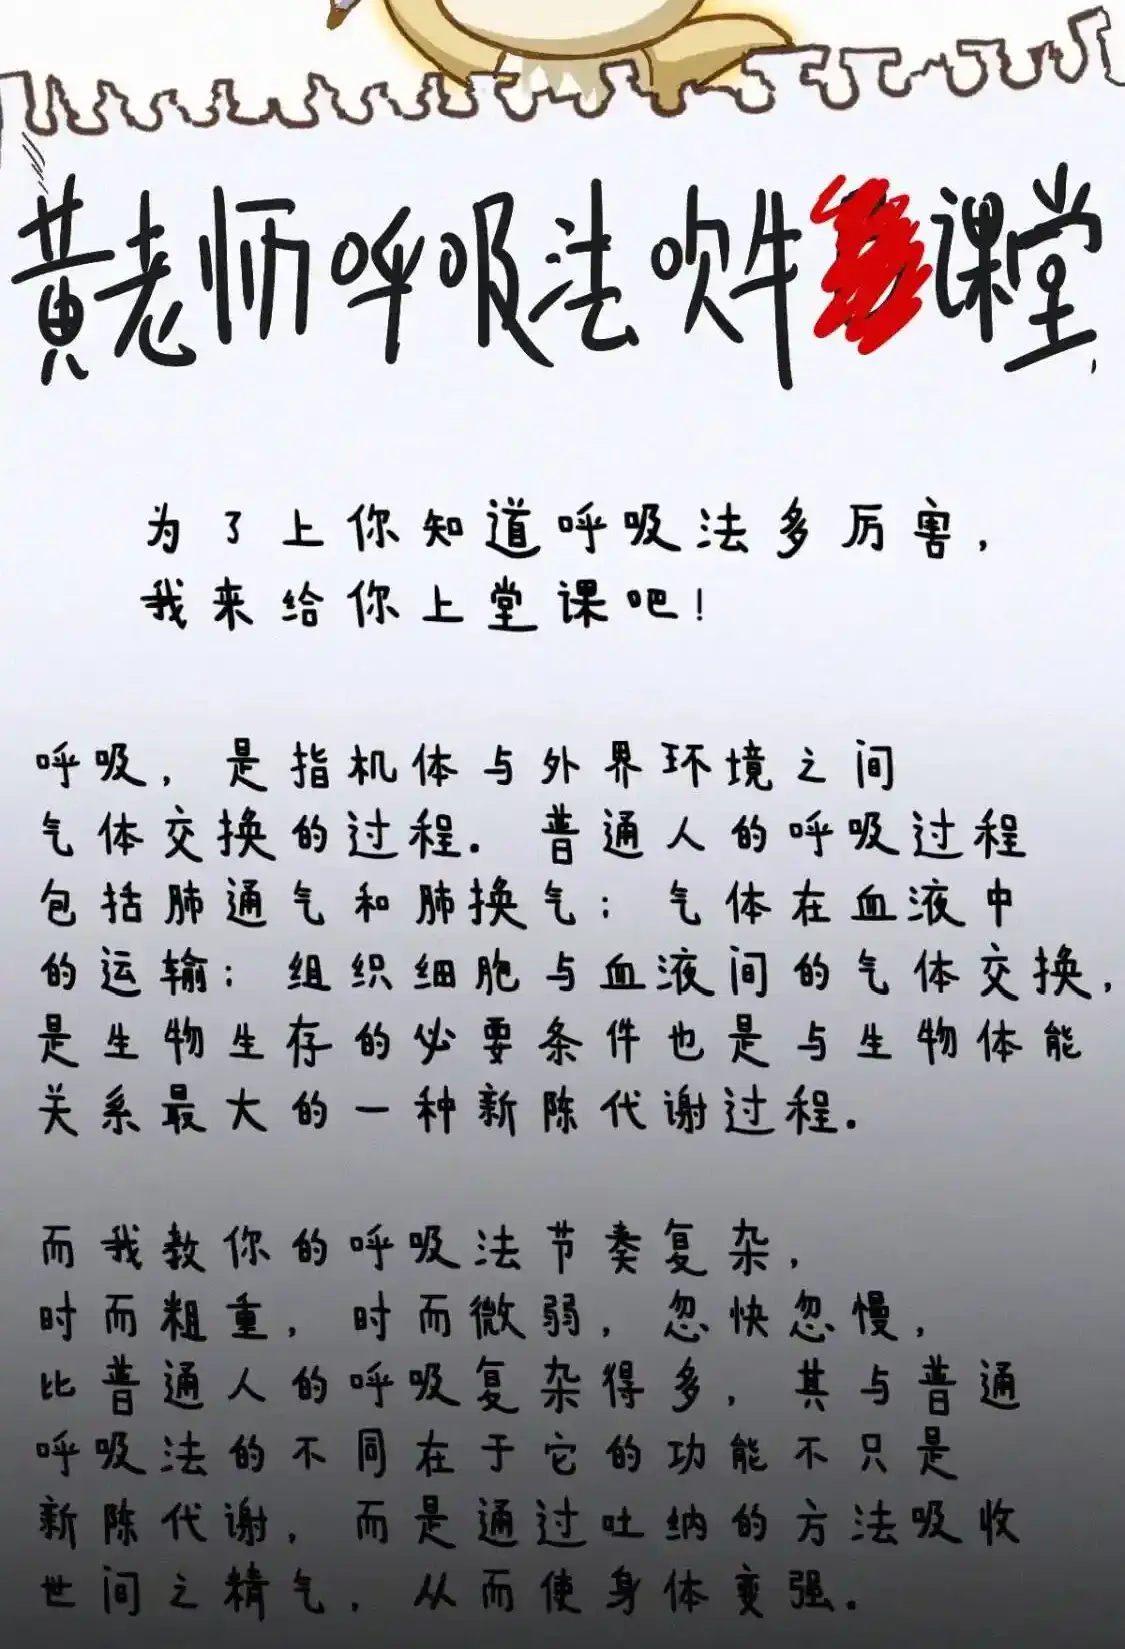 黄老师呼吸法吹牛课堂
为了上你知道呼吸法多厉害,
我来给你上堂课吧!
呼吸,是指机体与外界环境之间
气体交换的过程.普通人的呼吸过程
包括肺通气和肺换气;气体在血液中
的运输;组织细胞与血液间的气体交换,
是生物生存的必要条件也是与生物体能
关系最大的一种新陈代谢过程.
而我教你的呼吸法节奏复杂,
时而粗重,时而微弱,忽快忽慢,
比普通人的呼吸复杂得多,其与普通
呼吸法的不同在于它的功能不只是
新陈代谢,而是通过吐纳的方法吸收
世间之精气,从而使身体变强.